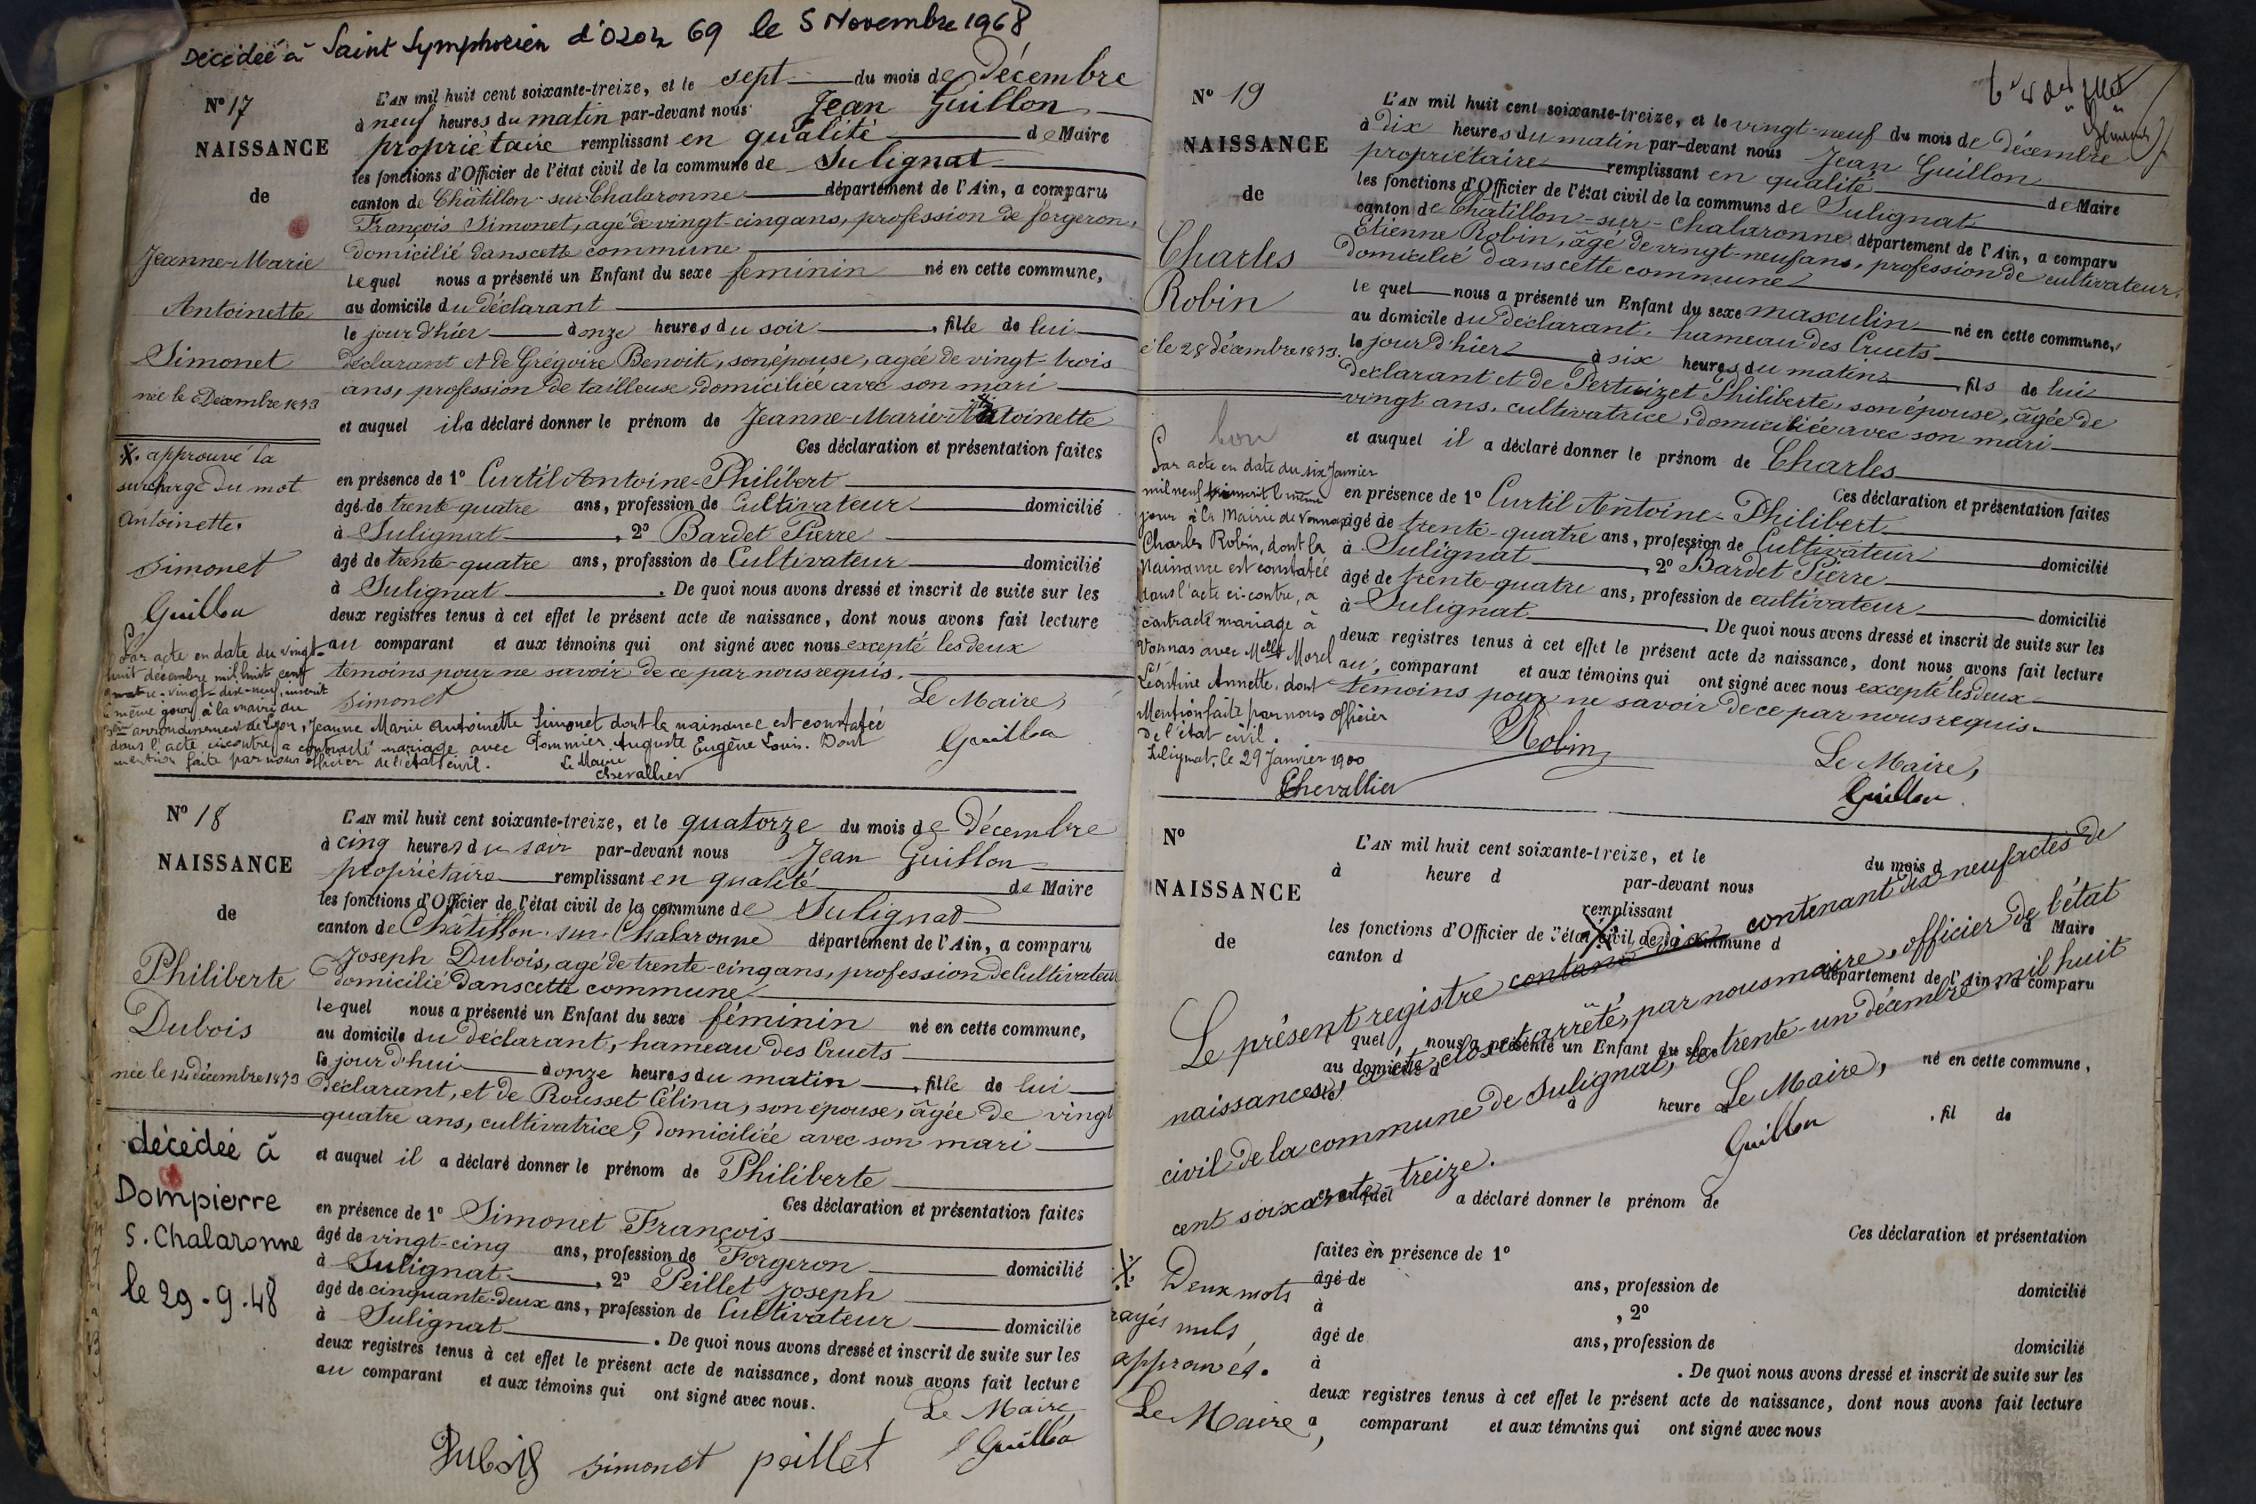 Décédée à Saint Symphorien d'Ozon 69 le 5 Novembre 1968
N° 17
NAISSANCE
de
Jeanne-Marie
Antoinette
Simonet
née le 6 Décembre 1873
X. approuvé la
surcharge du mot
Antoinette.
Simonet
Guillon
L'AN mil huit cent soixante-treize, et le sept du mois de Décembre
à neuf heures du matin par-devant nous Jean Guillon
propriétaire remplissant en qualité de Maire
les fonctions d'Officier de l'état civil de la commune de Sulignat
canton de Châtillon-sur-Chalaronne département de l'Ain, a comparu
François Simonet, agé de vingt-cinq ans, profession de forgeron,
domicilié dans cette commune
lequel nous a présenté un Enfant du sexe féminin né en cette commune,
au domicile du déclarant
le jour d'hier à onze heures du soir , fille de lui
déclarant et de Grégoire Benoite, son épouse, agée de vingt-trois
ans, profession de tailleuse, domiciliée avec son mari
et auquel il a déclaré donner le prénom de Jeanne-Marie-Antoinette
Ces déclaration et présentation faites
en présence de 1° Curtil Antoine-Philibert
âgé de trente-quatre ans, profession de Cultivateur domicilié
à Sulignat , 2° Bardet Pierre
âgé de trente-quatre ans, profession de Cultivateur domicilié
à Sulignat . De quoi nous avons dressé et inscrit de suite sur les
deux registres tenus à cet effet le présent acte de naissance, dont nous avons fait lecture
au comparant et aux témoins qui ont signé avec nous excepté les deux
témoins pour ne savoir de ce par nous requis.
Simonet Le Maire,
Guillon
Par acte en date du vingt-
huit décembre mil huit cent
quatre-vingt-dix-neuf, inscrit
le même jour à la mairie du
arrondissement de Lyon, Jeanne Marie Antoinette Simonet dont la naissance est constatée
dans l'acte ci-contre a contracté mariage avec Pommier Auguste Eugène Louis. Dont
mention faite par nous officier de l'état civil.
Le Maire
Chevallier
N° 18
NAISSANCE
de
Philiberte
Dubois
née le 14 décembre 1873
décédée à
Dompierre
S. Chalaronne
le 29.9.48
L'AN mil huit cent soixante-treize, et le quatorze du mois de Décembre
à cinq heures du soir par-devant nous Jean Guillon
propriétaire remplissant en qualité de Maire
les fonctions d'Officier de l'état civil de la commune de Sulignat
canton de Châtillon-sur-Chalaronne département de l'Ain, a comparu
Joseph Dubois, agé de trente-cinq ans, profession de Cultivateur
domicilié dans cette commune
lequel nous a présenté un Enfant du sexe féminin né en cette commune,
au domicile du déclarant, hameau des Cruets
le jour d'hui à onze heures du matin , fille de lui
déclarant, et de Rousset Célina, son épouse, âgée de vingt
quatre ans, cultivatrice, domiciliée avec son mari
et auquel il a déclaré donner le prénom de Philiberte
Ces déclaration et présentation faites
en présence de 1° Simonet François
âgé de vingt-cinq ans, profession de Forgeron domicilié
à Sulignat , 2° Peillet Joseph
âgé de cinquante-deux ans, profession de Cultivateur domicilié
à Sulignat . De quoi nous avons dressé et inscrit de suite sur les
deux registres tenus à cet effet le présent acte de naissance, dont nous avons fait lecture
au comparant et aux témoins qui ont signé avec nous.
Le Maire
Dubois simonet peillet Guillon
N° 19
NAISSANCE
de
Charles
Robin
né le 28 décembre 1873.
bon
Par acte en date du six Janvier
mil neuf cent inscrit le même
jour à la Mairie de Vonnas
Charles Robin, dont la
Naissance est constatée
dans l'acte ci-contre, a
contracté mariage à
Vonnas avec Melle Morel
Léontine Annette, dont
Mention faite par nous officier
de l'état civil.
Sulignat, le 29 Janvier 1900
Chevallier
L'AN mil huit cent soixante-treize, et le vingt-neuf du mois de décembre
à dix heures du matin par-devant nous Jean Guillon
propriétaire remplissant en qualité de Maire
les fonctions d'Officier de l'état civil de la commune de Sulignat
canton de Châtillon-sur-Chalaronne département de l'Ain, a comparu
Etienne Robin, âgé de vingt-neuf ans, profession de cultivateur,
domicilié dans cette commune
lequel nous a présenté un Enfant du sexe masculin né en cette commune,
au domicile du déclarant, hameau des Cruets
le jour d'hier à six heures du matin , fils de lui
déclarant et de Pertuizet Philiberte, son épouse, âgée de
vingt ans, cultivatrice, domiciliée avec son mari
et auquel il a déclaré donner le prénom de Charles
Ces déclaration et présentation faites
en présence de 1° Curtil Antoine-Philibert
âgé de trente-quatre ans, profession de Cultivateur domicilié
à Sulignat , 2° Bardet Pierre
âgé de trente-quatre ans, profession de cultivateur domicilié
à Sulignat . De quoi nous avons dressé et inscrit de suite sur les
deux registres tenus à cet effet le présent acte de naissance, dont nous avons fait lecture
au comparant et aux témoins qui ont signé avec nous excepté les deux
témoins pour ne savoir de ce par nous requis.
Robin Le Maire,
Guillon
N°
NAISSANCE
de
L'AN mil huit cent soixante-treize, et le du mois d
à heure d par-devant nous
remplissant
les fonctions d'Officier de l'état civil de la commune d d Maire
canton d département de l'Ain, a comparu
quel nous a présenté un Enfant du sexe né en cette commune,
au domicile d
à heure , fil de
et auquel a déclaré donner le prénom de
Ces déclaration et présentation
faites en présence de 1°
âgé de ans, profession de domicilié
à , 2°
âgé de ans, profession de domicilié
à . De quoi nous avons dressé et inscrit de suite sur les
deux registres tenus à cet effet le présent acte de naissance, dont nous avons fait lecture
a comparant et aux témoins qui ont signé avec nous
Le présent registre contenant dix-neuf actes de
naissances, a été clos et arrêté, par nous maire, officier de l'état
civil de la commune de Sulignat, le trente-un décembre mil huit
cent soixante treize.
Le Maire,
Guillon
X Deux mots
rayés nuls
approuvés.
Le Maire,